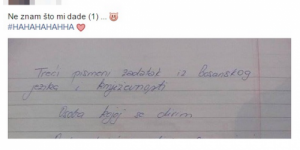 Ne znam što mi dade (1) ...
#HAHAHAHAHHA
Treći pismeni zadatak iz bosanskog
jezika i književnosti
Osoba kojoj se divim